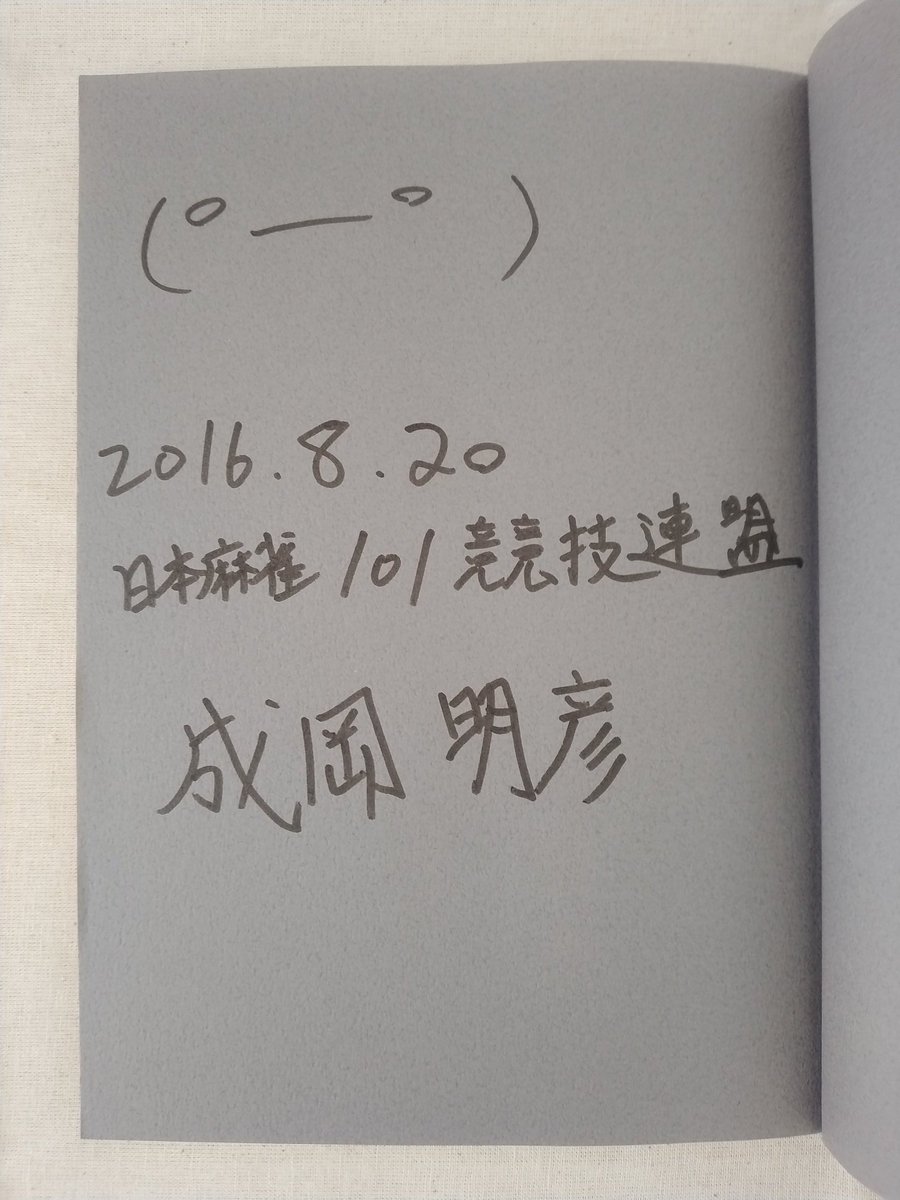 (゚ー゚ )
2016.8.20
日本麻雀101競技連盟
成岡明彦